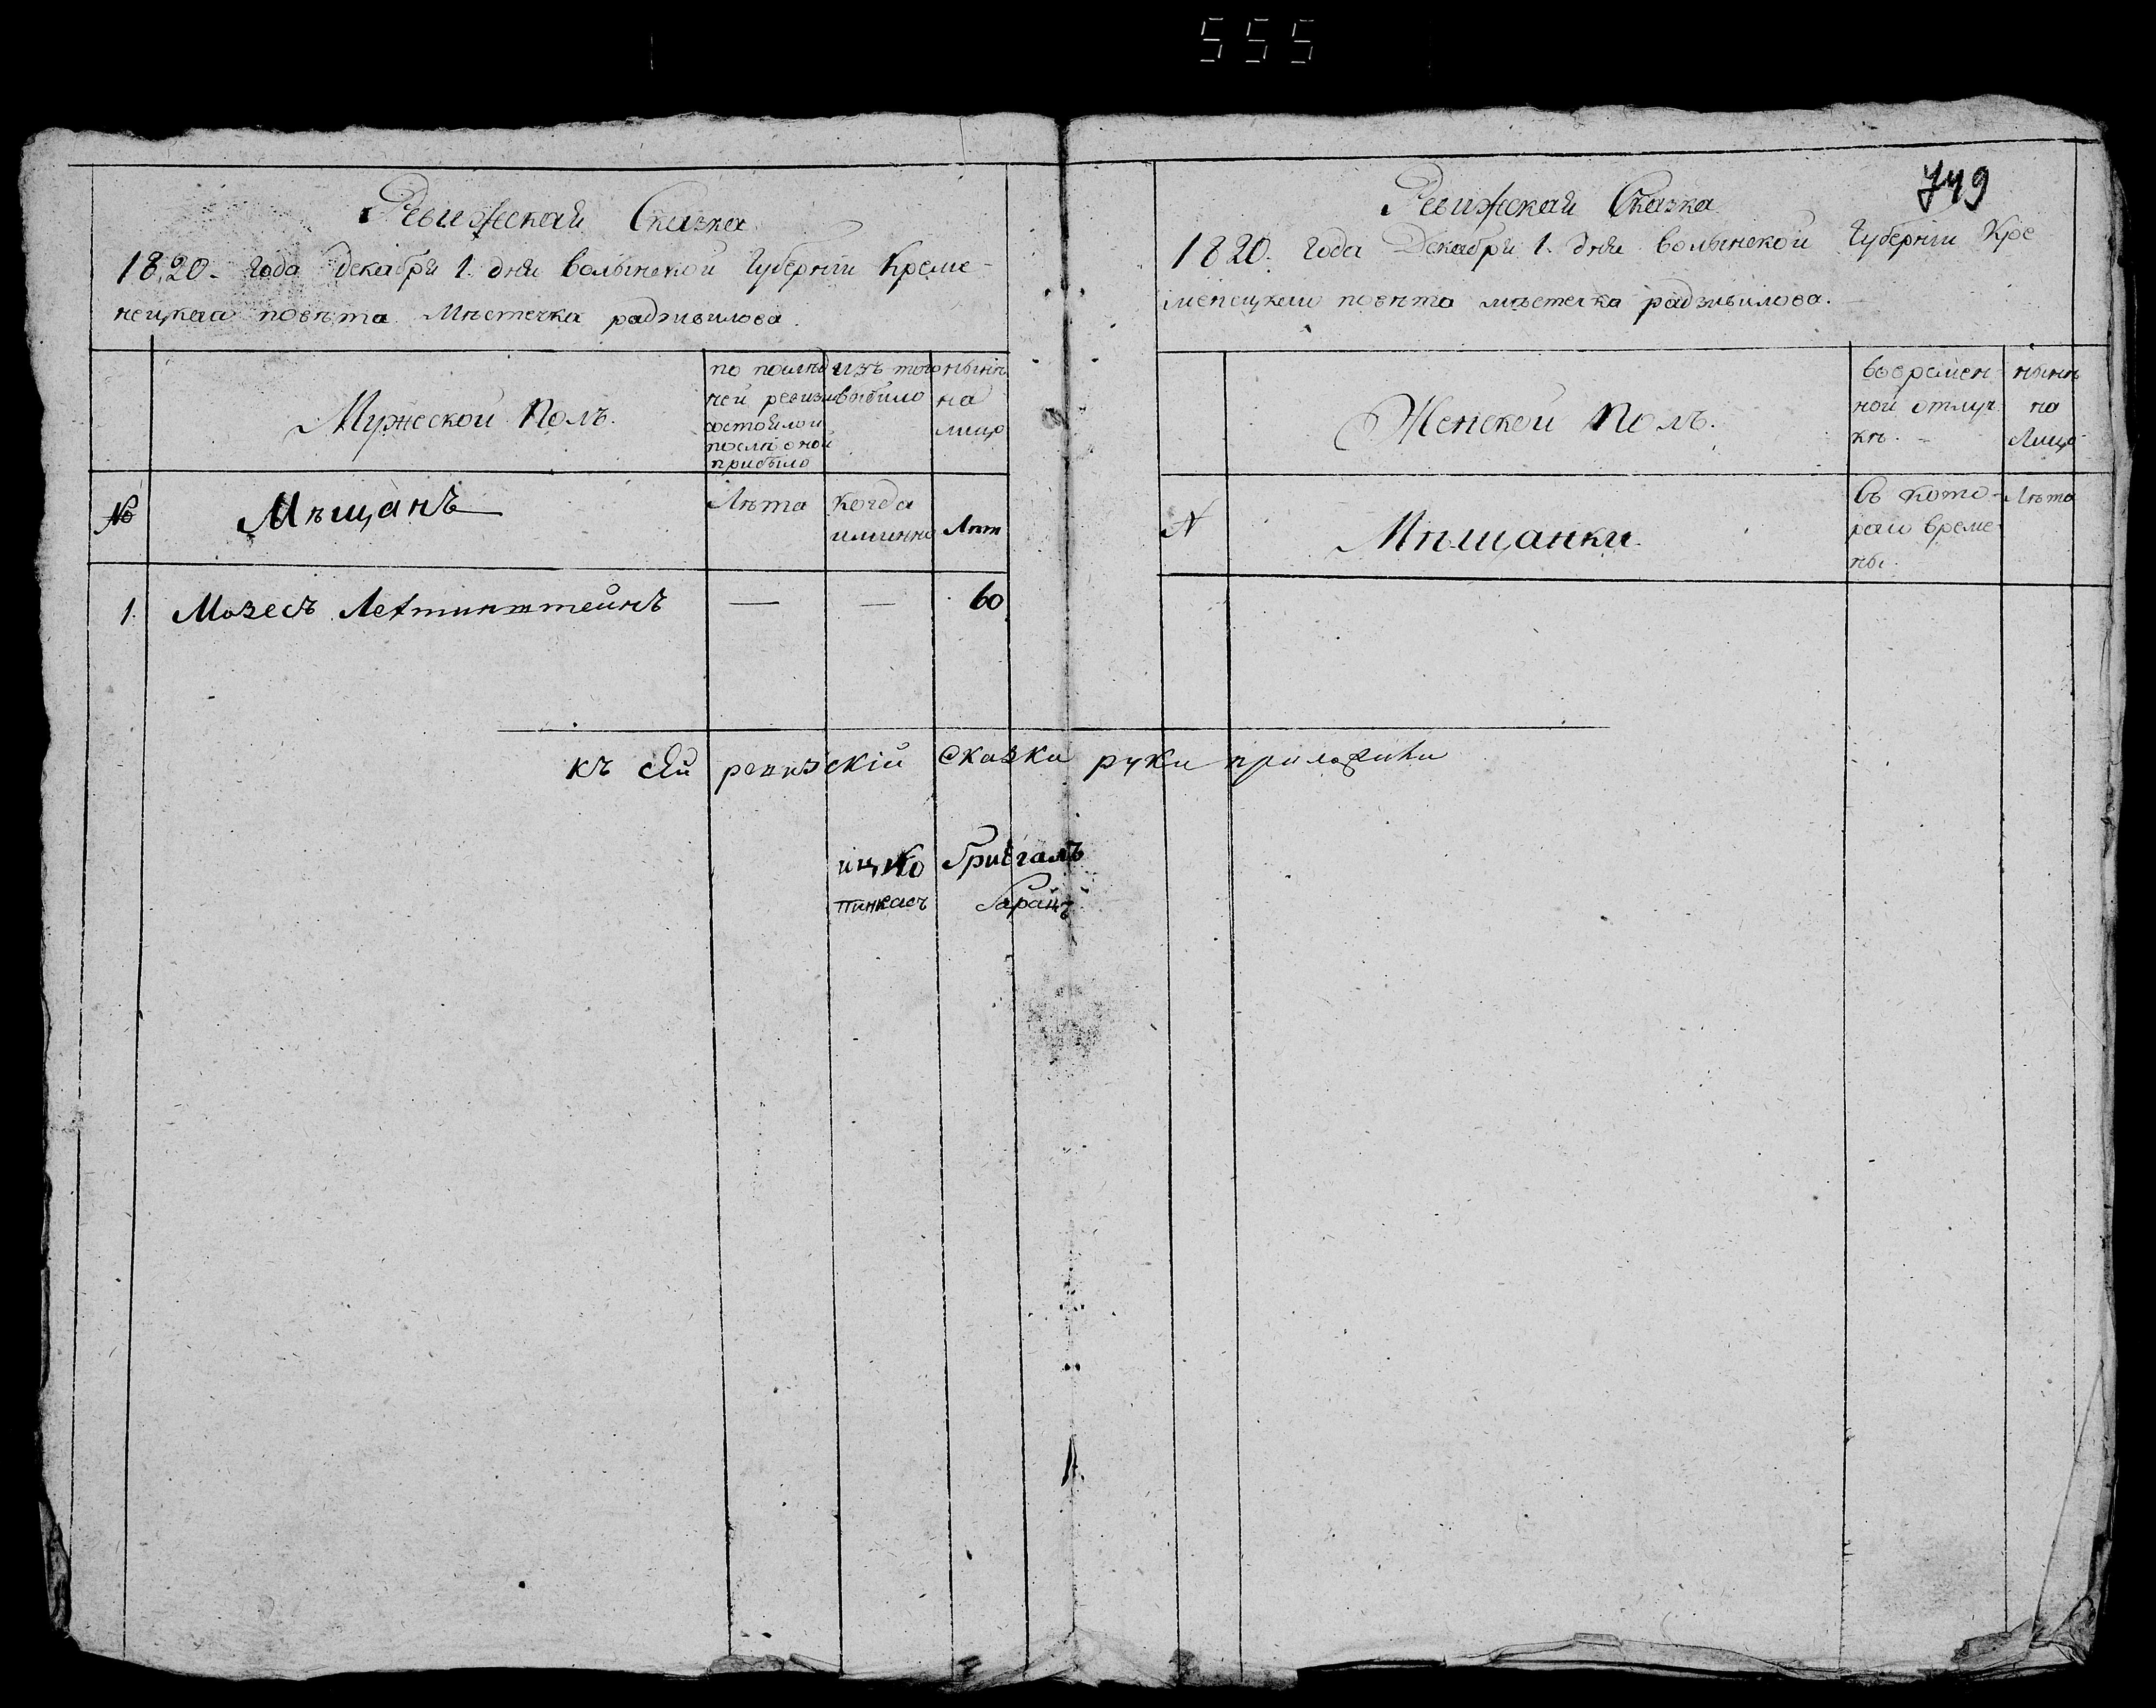 555
Ревижская Сказка
1820. года декабря 1. дня волынской Губерніи Креме-
нецкаго повѣта Мѣстечка радзивилова.
Мужеской Полъ.
по послѣд
ней ревизіи
состояло и
послѣ оной
прибыло
изъ того
выбыло
нынѣ
на
лицо
№
Мѣщанъ
Лѣта
когда
именно
Лѣт
1.
Мозесъ Лехтинштейнъ
—
—
60
749
Ревижская Сказка
1820. года Декабря 1. дня волынской Губерніи Кре
менецкаго повѣта мѣстечка радзивилова.
Женской Полъ.
вовремен-
ной отлуч
кѣ.
нынѣ
на
Лицо
N
Мѣщанки
Съ кото-
раго време-
ны.
Лѣта
къ сей ревизскій сказки руки приложили
ицко
пинкасъ